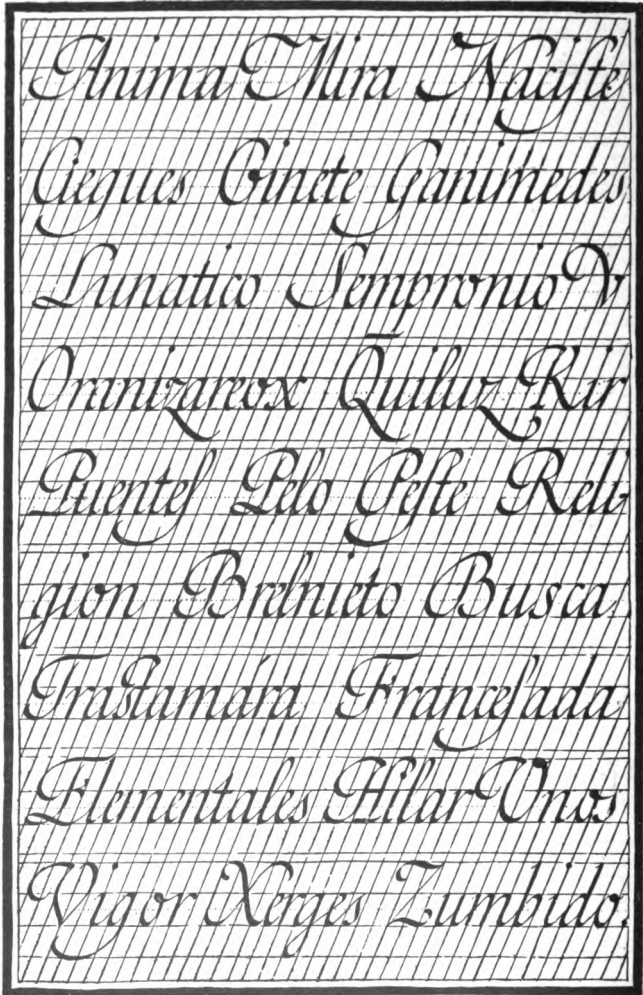 Anima Mira Naciſte
Ciegues Ginete Ganimedes
Lunatico Sempronio V
Oranizareox Quiluz Kir
Puenteſ Pelo Peſte Reli-
gion Brelnieto Busca
Traſtamára Franceſada
Elementales Hilar Vnos
Vigor Xerges Zumbido.